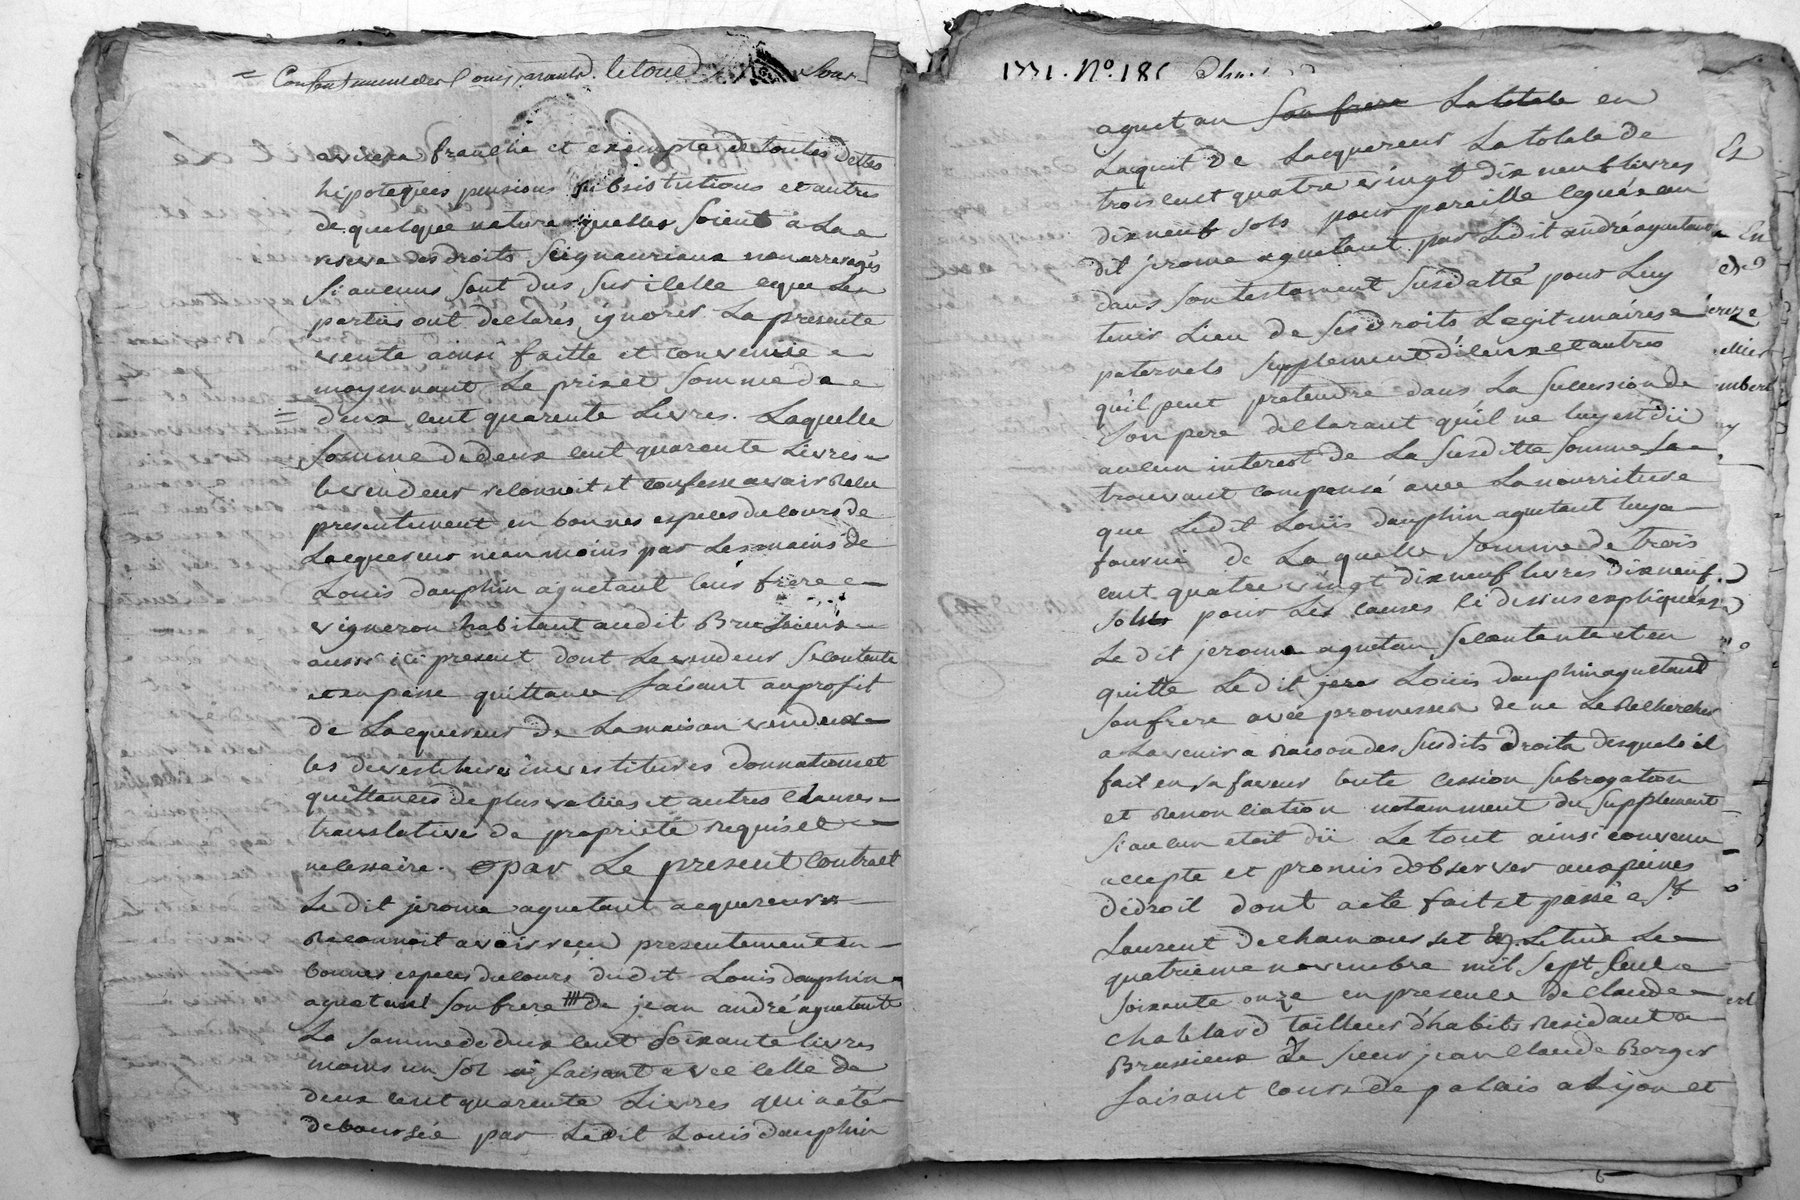 = Consentement des Comparants. le tout Sous
avieux franche et exempte de toutes dettes
hipoteques pensions substitutions et autres
de quelque nature quelles soient à La
reserve des droits Seigneuriaux non arreragés
Si aucuns sont dus sur icelle que les
parties ont declarés ignorer. La presente
vente ainsi faitte et convenüe
moyennant Le prix et Somme de
= deux cent quarente Livres. Laquelle
Somme de deux cent quarente Livres
le vendeur reconnoit et confesse avoir recu
presentement en bonnes especes du cours de
Lacquereur neanmoins par Les mains de
Louis dauphin aguetant leur frere
vigneron habitant audit Brussieux
aussi ici present dont Le vendeur se contente
et en passe quittance faisant au profit
de Lacquereur de La maison vendeue
les devestitures investitures donnations et
quittances de plus values et autres clauses
translative de proprieté requise et
necessaire. par Le present Contract
Le dit jerome aguetant acquereur
Reconnoit avoir recu presentement en
bonnes especes du cours, dudit Louis dauphin
aguetant Son frere de jean andré aguetant
La Somme de deux cent Soixante livres
moins un Sol faisant avec celle de
deux cent quarente Livres qui a eté
deboursée par Le dit Louis dauphin
1771. No. 185
aguetan Son frere La totale en
Lacquit de Lacquereur La totale de
trois cent quatre vingt dix neuf livres
dix neuf Sols pour pareille leguée au
dit jerome aguetant par Ledit andré aguetant
dans Son testament Susdatté pour Luy
tenir Lieu de Ses droits Legitimaires
paternels Supplement diceux et autres
quil peut pretendre dans La Succession de
Son pere declarant quil ne luy est dü
aucun interest de La Susditte Somme Se
trouvant compensé avec La nourriture
que Ledit Loüis dauphin aguetant luy a
fourni de Laquelle Somme de Trois
cent quatre vingt dix neuf livres dix neuf
Sols pour Les causes ci dessus expliquées
Le dit jerome aguetan Se contente et en
quitte Le dit Loüis dauphin aguetant
Son frere avec promesse de ne Le Rechercher
a Lavenir a Raison des Susdits droits desquels il
fait en sa faveur toute cession Subrogation
et Renonciation notamment du Supplement
Si aucun etoit dü Le tout ainsi convenu
accepte et promis dobserver aux peines
de droit dont acte fait et passé a St
Laurent de chamousset Etude Le
quatrieme novembre mil Sept Cent
Soixante onze en presence de Claude
chatelard tailleur d'habits residant a
Brussieux de Sieur jean Claude Berger
faisant cours de palais a Lyon et